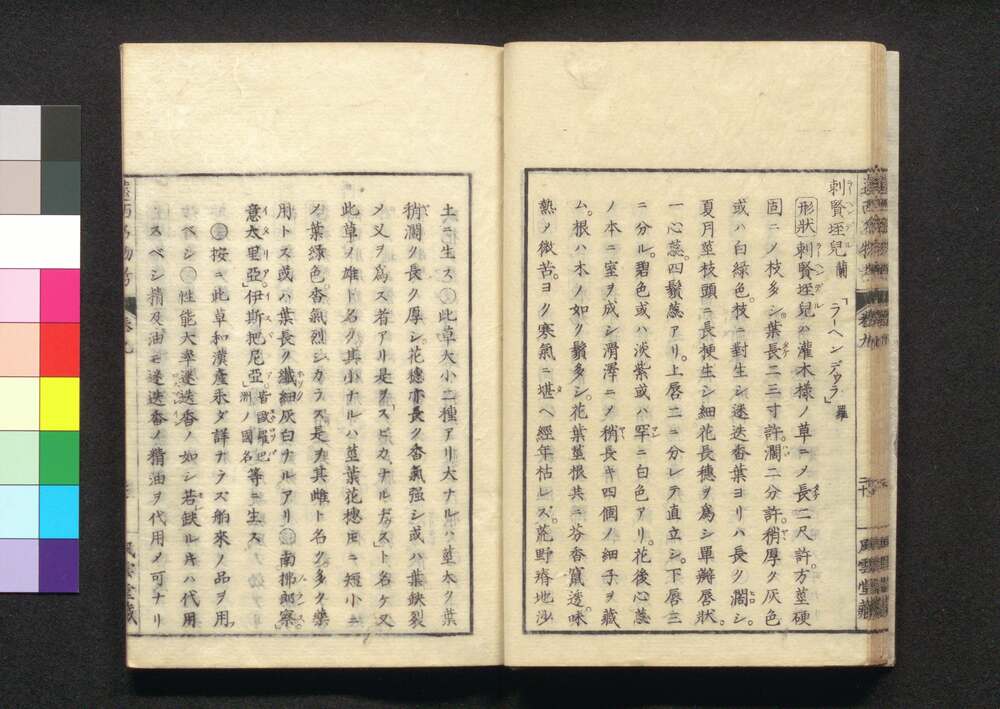 刺賢垤兒 蘭「ラーヘンデウラ」羅
形狀 刺賢垤兒ハ灌木様ノ草ニノ長二尺許方莖硬
固ニノ枝多シ。葉長二三寸許濶二分許。稍厚ク灰色
或ハ白緑色。枝ニ對生シ迷迭香葉ヨリハ長ク濶シ。
夏月莖枝頭ニ長梗生シ細花長穗ヲ為シ單瓣唇狀。
一心蕊。四鬚蕊アリ。上唇二ニ分レテ直立シ。下唇三
ニ分ル。碧色或ハ淡紫或ハ罕ニ白色アリ。花後心蕊
ノ本ニ室ヲ成シ滑澤ニメ稍長キ四個ノ細子ヲ藏
ム。根ハ木ノ如ク鬚多シ。花葉莖根共ニ芬香竄透。味
熱ノ微苦。ヨク寒氣ニ堪ヘ經年枯レズ。荒野瘠地沙
風雲堂藏
土ニ生ス 此草大小二種アリ大ナルハ莖木ク葉
稍濶ク長ク厚シ。花穗亦長ク香氣強シ或ハ葉鈌裂
メ又ヲ爲ス者アリ是ヲ「スピカナルヂス」ト名ケ又
此草ノ雄ト名ク其小ナルハ莖葉花穗
ノ葉緑色。香氣烈シカラス是ヲ其雌ト名ク多ク藥
用トス或ハ葉長ク纖細灰白ナルアリ 南「拂郎察」
意太里亞。「伊斯把尼亞」皆歐羅巴洲ノ國名 等ニ生ス
按ニ此草和漢産未ダ詳ナラズ舶來ノ品ヲ用
ベシ 性能大率迷迭香ノ如シ若鈌ルキハ代用
スベシ精及油モ迷迭香ノ精油ヲ代用メ可ナリ